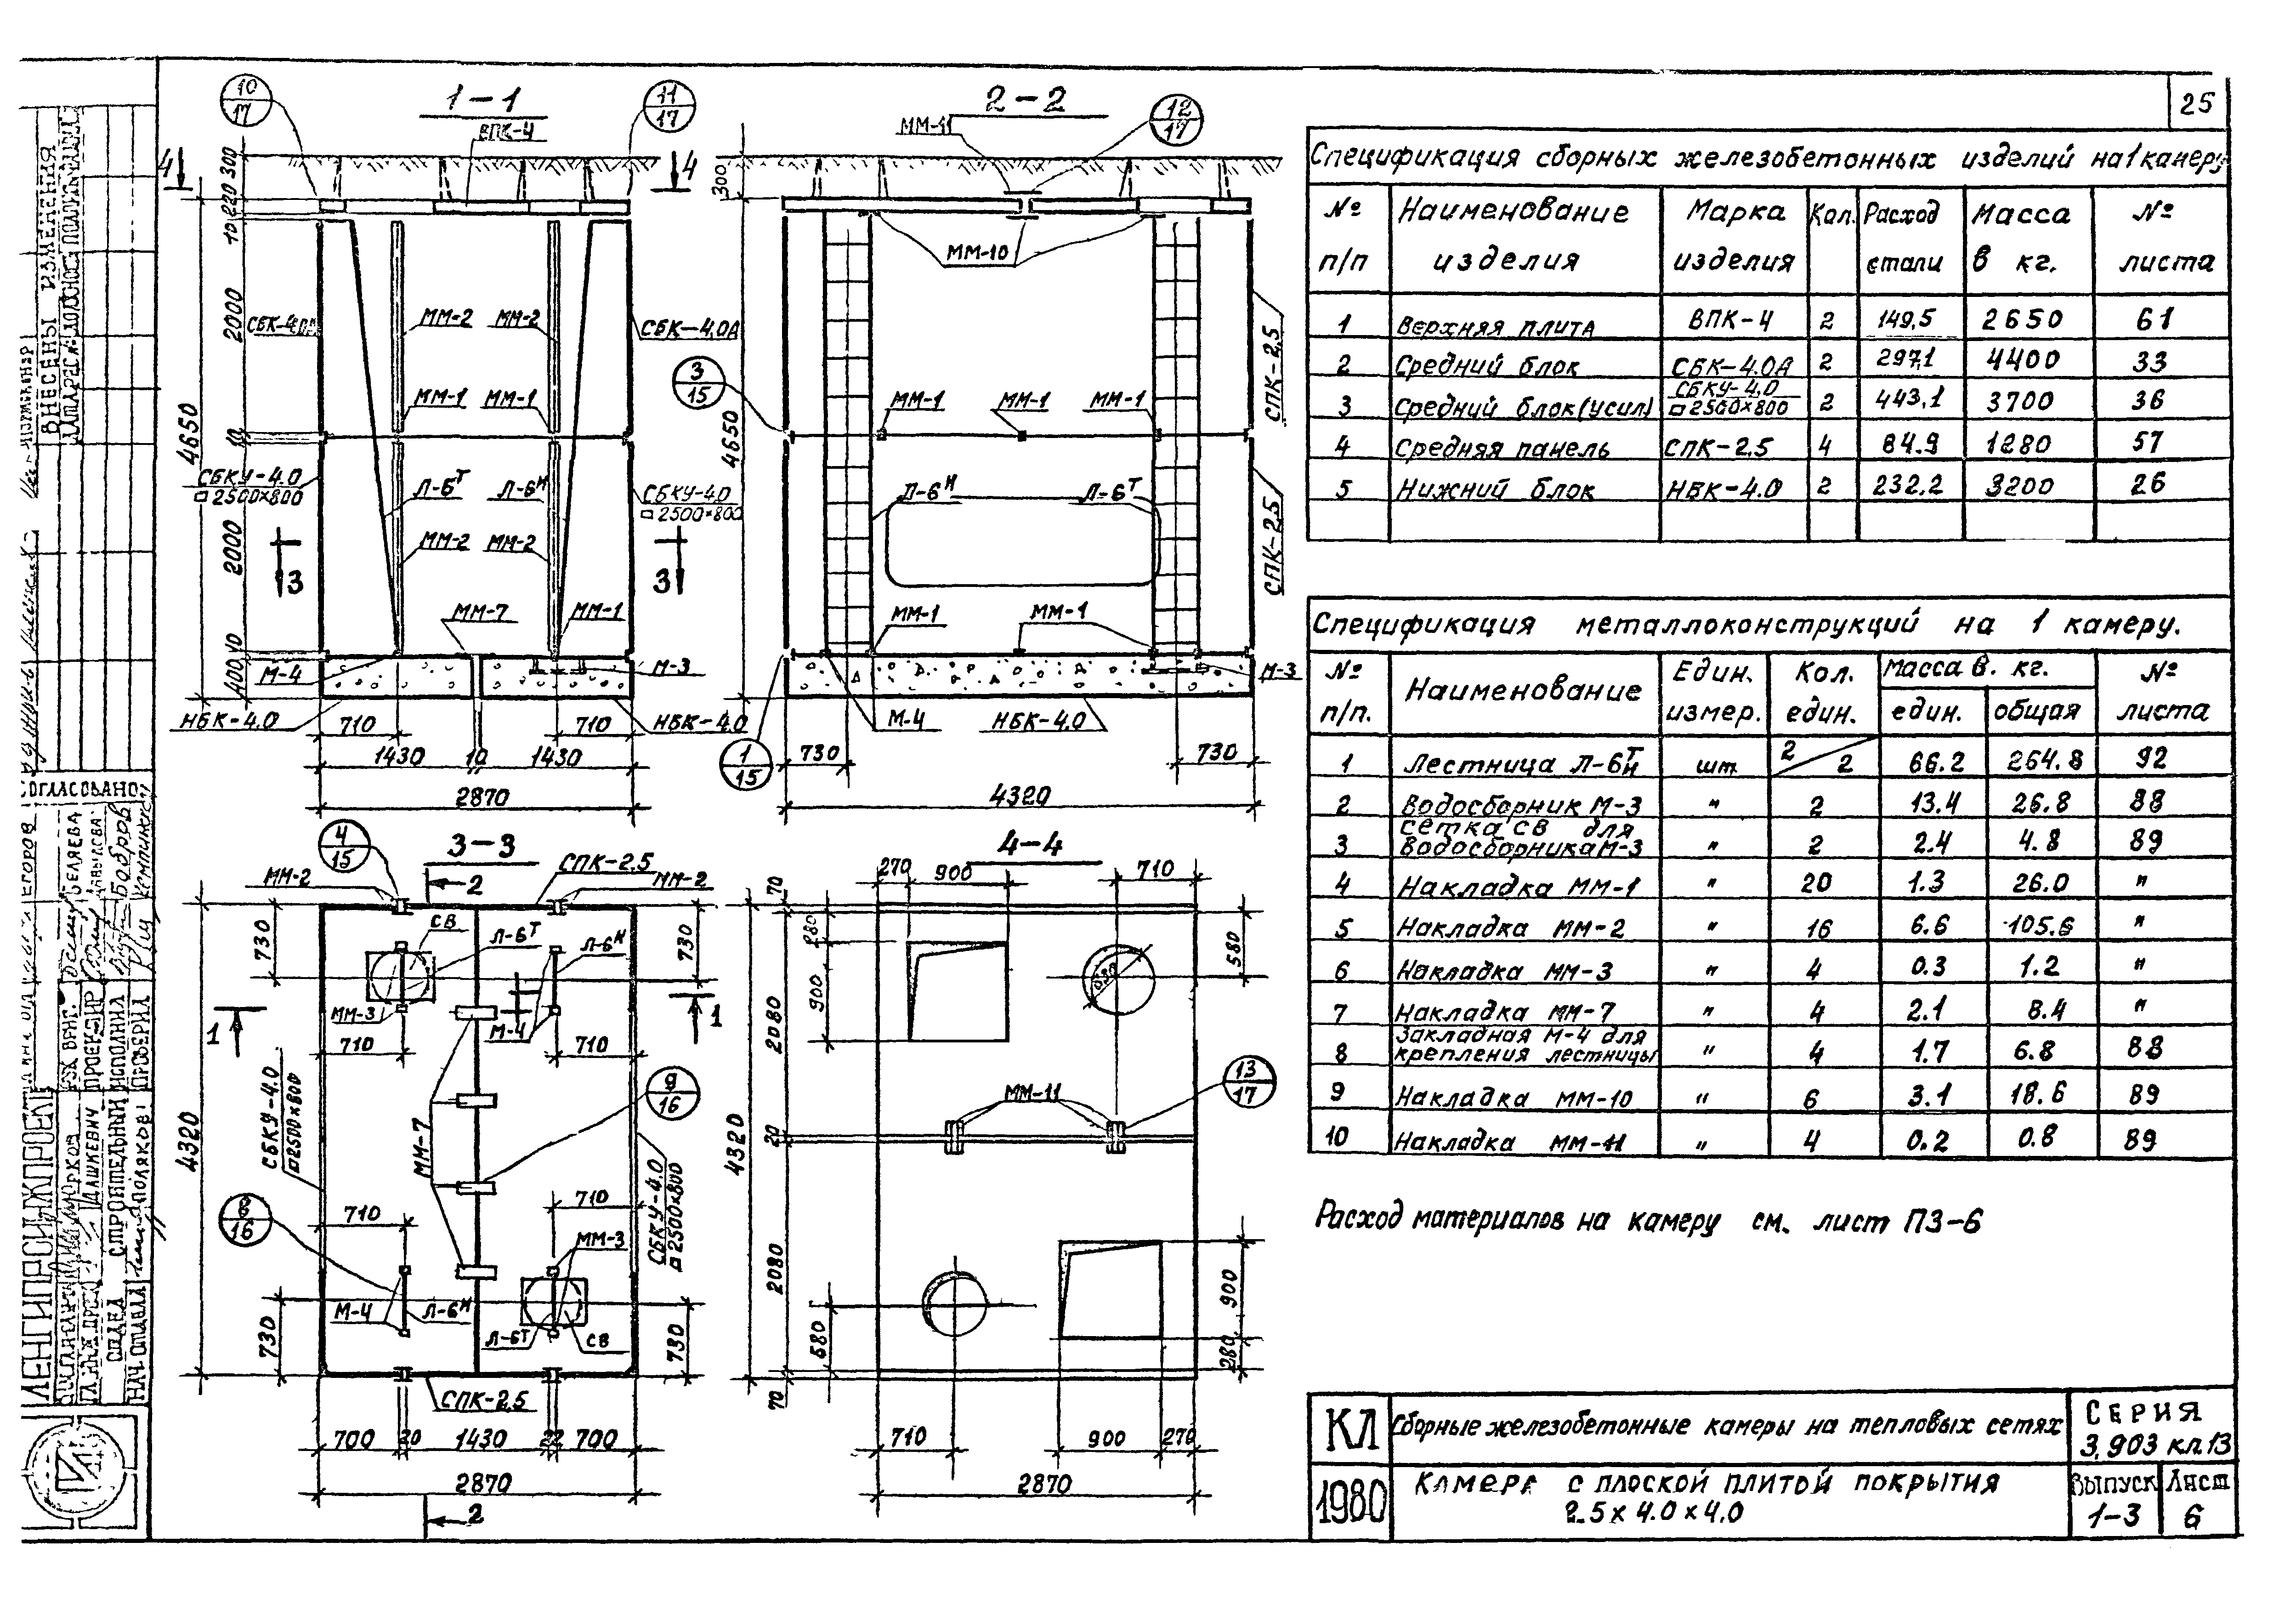 25
1-1
10
17
11
17
ВПК-4
4
4
300
220
10
2000
4650
10
2000
10
400
СБК-4.0А
СБК-4.0А
ММ-2
ММ-2
ММ-1
ММ-1
СБКУ-4.0
□2500×800
Л-6Т
Л-6Н
СБКУ-4.0
□2500×800
ММ-2
ММ-2
3
3
ММ-7
ММ-1
М-4
М-3
НБК-4.0
НБК-4.0
710
710
1430
10
1430
2870
2-2
ММ-11
12
17
300
ММ-10
3
15
4650
СПК-2.5
ММ-1
ММ-1
ММ-1
Л-6Н
Л-6Т
СПК-2.5
ММ-1
ММ-1
М-3
М-4
НБК-4.0
1
15
730
730
4320
3-3
4
15
СПК-2.5
ММ-2
ММ-2
2
730
730
СВ
Л-6Т
Л-6Н
ММ-3
М-4
1
1
710
710
СБКУ-4.0
□2500×800
9
16
4320
ММ-7
СБКУ-4.0
□2500×800
8
16
710
710
ММ-3
М-4
Л-6Н
Л-6Т
СВ
730
730
СПК-2.5
700
20
1430
22
700
2870
2
4-4
270
900
710
70
280
900
580
2080
ММ-11
13
17
4320
20
2080
580
900
280
70
710
900
270
2870
Спецификация сборных железобетонных изделий на 1 камеру
№ п/п Наименование изделия Марка изделия Кол. Расход стали Масса в кг. № листа
1 Верхняя плита ВПК-4 2 149,5 2650 61
2 Средний блок СБК-4.0А 2 297,1 4400 33
3 Средний блок (усил) СБКУ-4.0 □2500×800 2 443,1 3700 36
4 Средняя панель СПК-2.5 4 84.9 1280 57
5 Нижний блок НБК-4.0 2 232.2 3200 26
Спецификация металлоконструкций на 1 камеру.
№ п/п. Наименование Един. измер. Кол. един. Масса в. кг. един. общая № листа
1 Лестница Л-6Т/Н шт 2/2 66.2 264.8 92
2 Водосборник М-3 " 2 13.4 26.8 88
3 Сетка СВ для водосборника М-3 " 2 2.4 4.8 89
4 Накладка ММ-1 " 20 1.3 26.0 "
5 Накладка ММ-2 " 16 6.6 105.6 "
6 Накладка ММ-3 " 4 0.3 1.2 "
7 Накладка ММ-7 " 4 2.1 8.4 "
8 Закладная М-4 для крепления лестницы " 4 1.7 6.8 88
9 Накладка ММ-10 " 6 3.1 18.6 89
10 Накладка ММ-11 " 4 0.2 0.8 89
Расход материалов на камеру см. лист ПЗ-6
КЛ
Сборные железобетонные камеры на тепловых сетях
Серия
3.903 кл.13
1980
Камера с плоской плитой покрытия
2.5×4.0×4.0
Выпуск
1-3
Лист
6
ВНЕСЕНЫ ИЗМЕНЕНИЯ
СОГЛАСОВАНО
ЛЕНГИПРОИНЖПРОЕКТ
ПРОЕКТИР
ИСПОЛНИЛ
ПРОВЕРИЛ
СТРОИТЕЛЬНЫЙ
ДАШКЕВИЧ
ПОЛЯКОВ
НАЧ. ОТДЕЛА